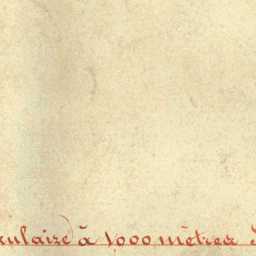 culaire à 1,000 mètres